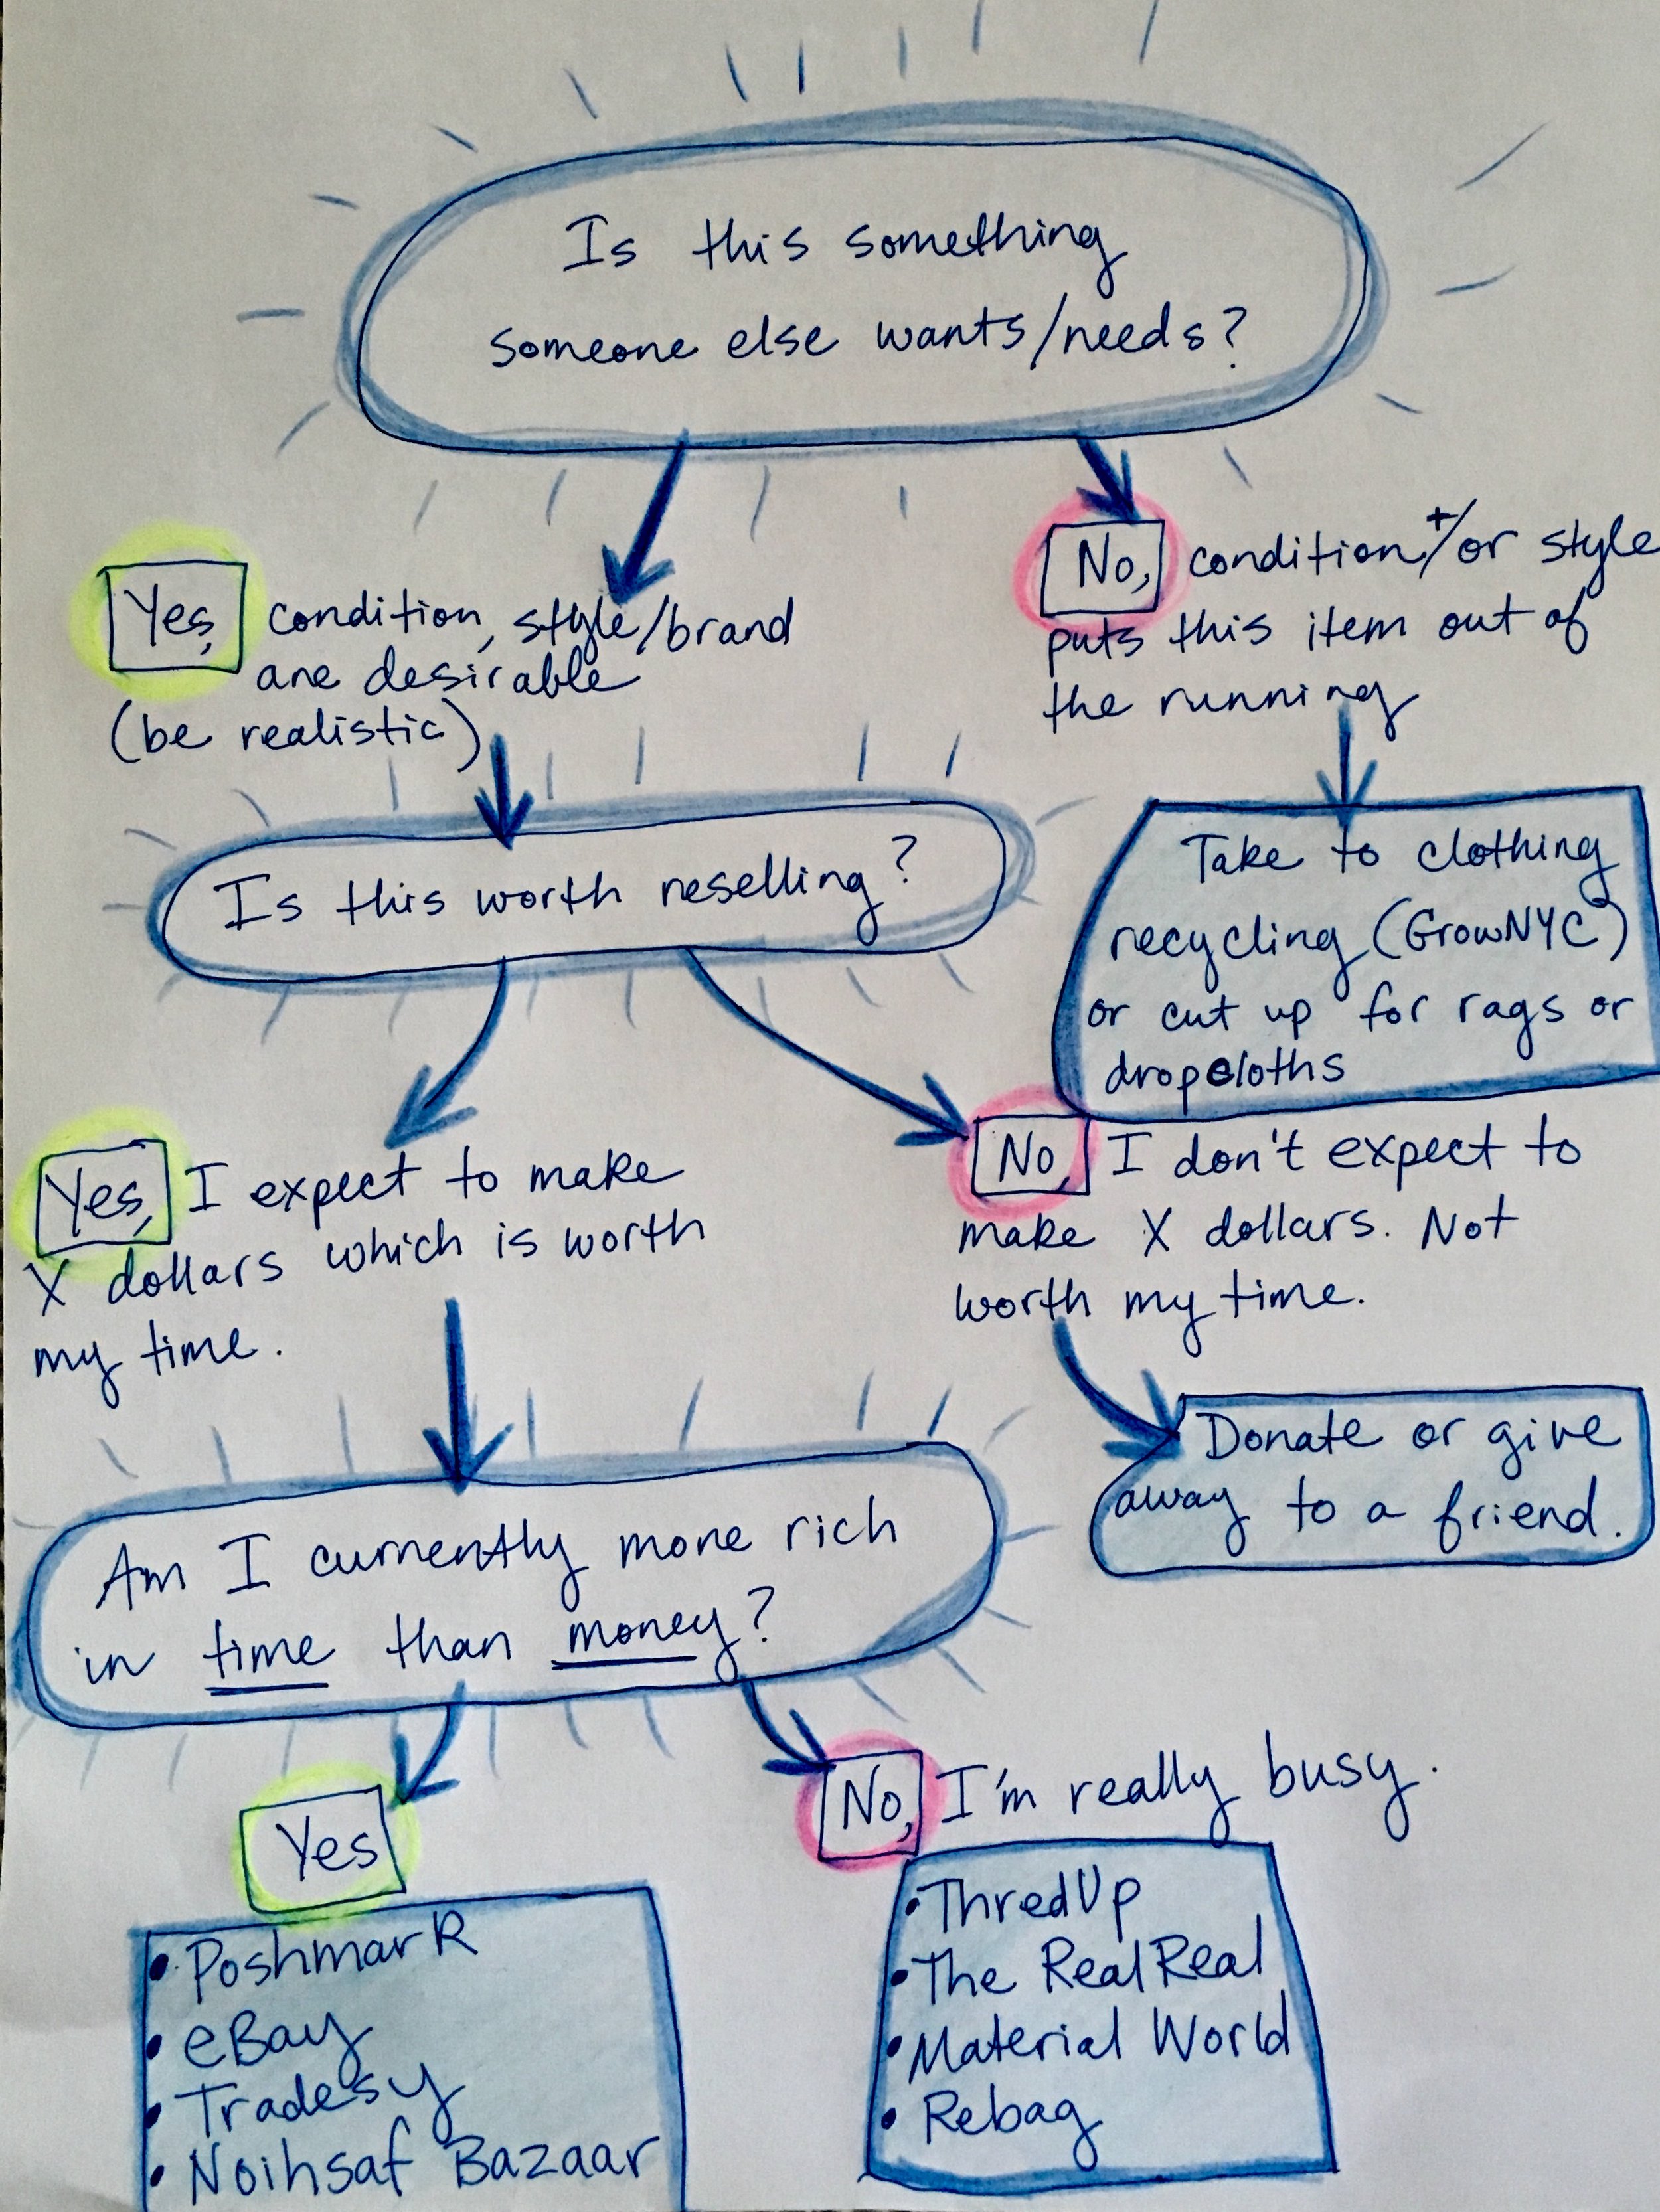 Is this something
someone else wants/needs?
Yes, condition, style/brand
are desirable
(be realistic)
No, condition +/or style
puts this item out of
the running
Take to clothing
recycling (GrowNYC)
or cut up for rags or
dropcloths
Is this worth reselling?
Yes, I expect to make
X dollars which is worth
my time.
No, I don't expect to
make X dollars. Not
worth my time.
Donate or give
away to a friend.
Am I currently more rich
in time than money?
Yes
• Poshmark
• eBay
• Tradesy
• Noihsaf Bazaar
No, I'm really busy.
• ThredUp
• The RealReal
• Material World
• Rebag